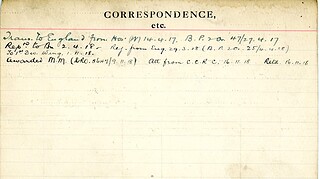 CORRESPONDENCE,
etc.
Trans. to England from Hav: (W) 14.4.17. B.P. 2 on 47/27.4.17
Rep'd to Bn 2.4.18. Rej. from Eng. 29.3.18 (B.P. 2 on 25/4.4.18)
To 1st Div. Wing. 1.11.18.
Awarded M.M. 9.11.18) Att from C.C.R.C. 16.11.18 Retd. 16.11.18